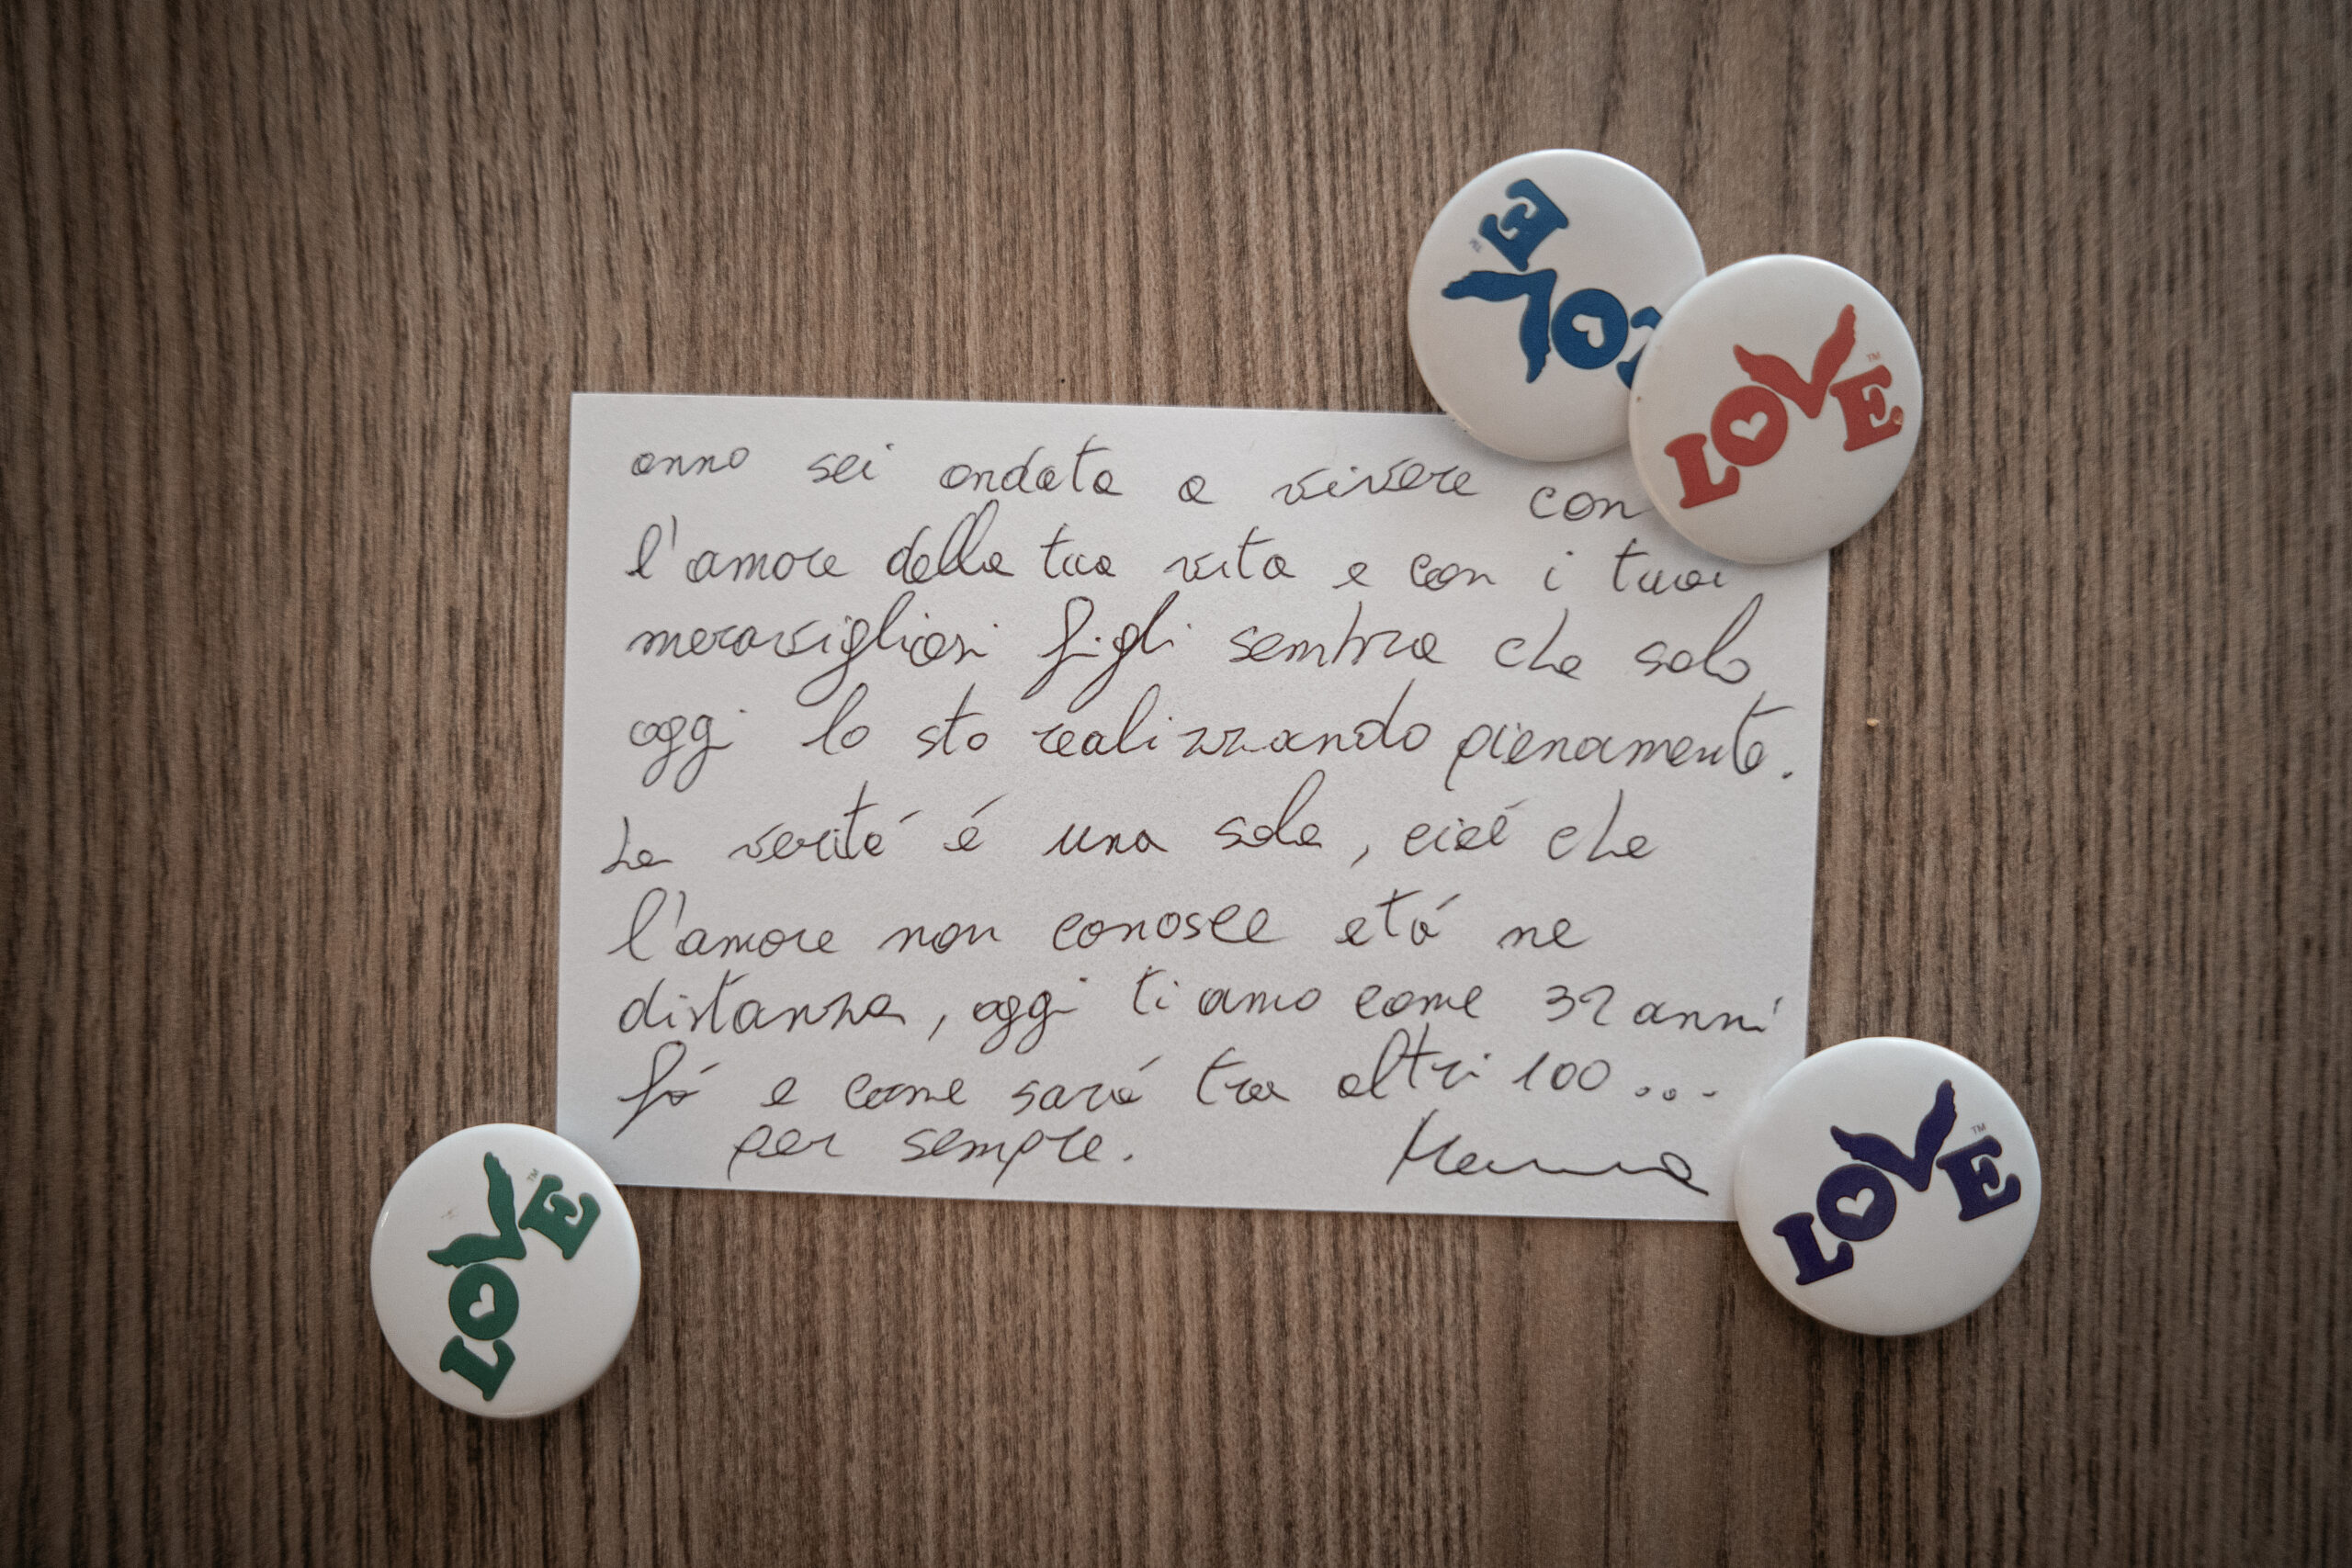 LOVE
TM
LOVE
TM
anno sei andata a vivere con
l'amore della tua vita e con i tuoi
meravigliosi figli sembra che solo
oggi lo sto realizzando pienamente.
La verità é una sola, cioé che
l'amore non conosce etá ne
distanza, oggi ti amo come 32 anni
fá e come sará tra altri 100...
per sempre.
LOVE
TM
LOVE
TM